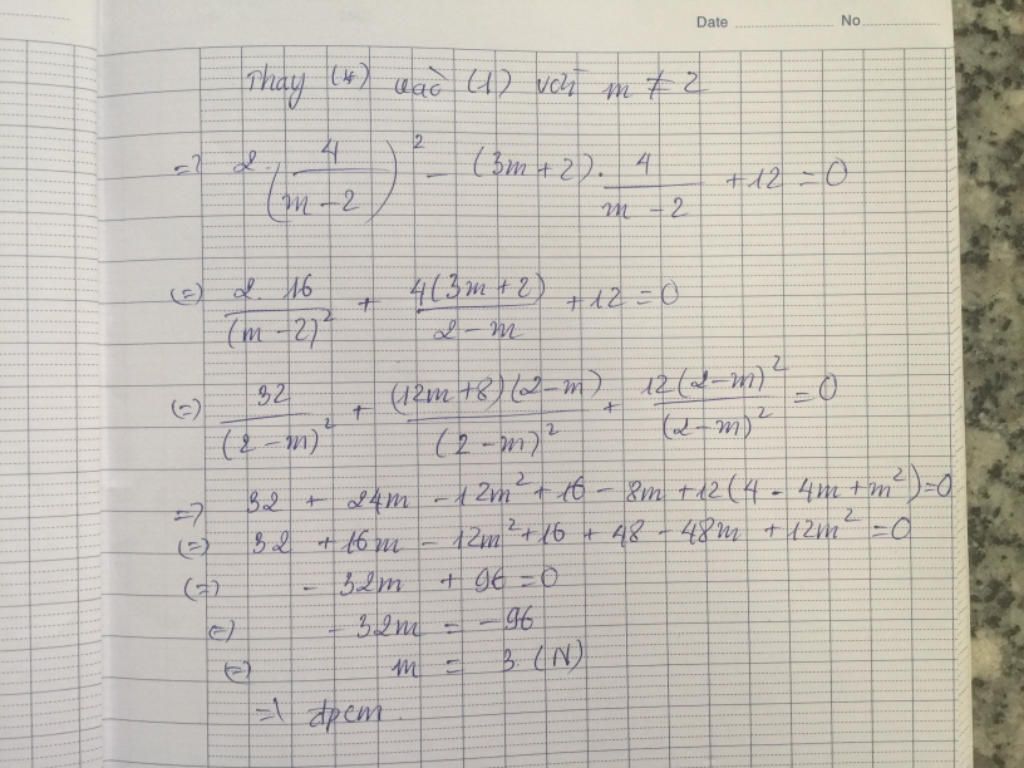 Date No
Thay (*) vào (1) với m ≠ 2
=> 2.(4/(m-2))² - (3m+2).4/(m-2) +12 = 0
(=) 2.16/(m-2)² + 4(3m+2)/(2-m) +12 = 0
(=) 32/(2-m)² + (12m+8)(2-m)/(2-m)² + 12(2-m)²/(2-m)² = 0
=> 32 + 24m - 12m² + 16 - 8m + 12(4 - 4m + m²) = 0
(=) 32 + 16m - 12m² + 16 + 48 - 48m + 12m² = 0
(=) - 32m + 96 = 0
(=) - 32m = -96
(=) m = 3 (N)
=> đpcm.